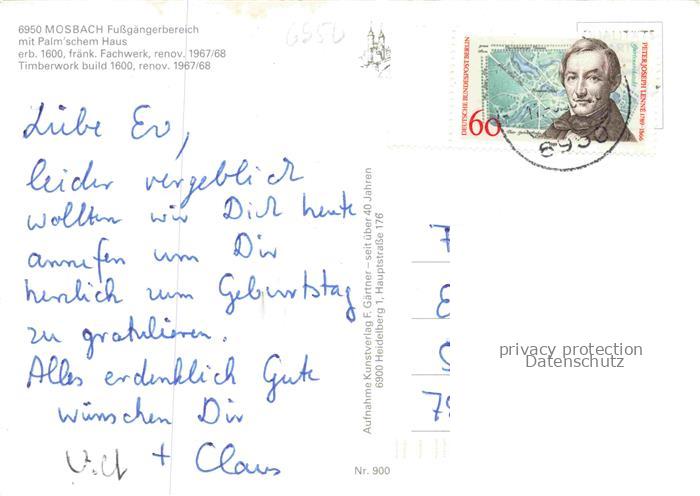 6950 MOSBACH Fußgängerbereich
mit Palm'schem Haus
erb. 1600, fränk. Fachwerk, renov. 1967/68
Timberwork build 1600, renov. 1967/68
6950
Liebe Ev,
leider vergeblich
wollten wir Dich heute
anrufen um Dir
herzlich zum Geburtstag
zu gratulieren.
Alles erdenklich Gute
wünschen Dir
+ Claus
Aufnahme Kunstverlag F. Gärtner – seit über 40 Jahren
6900 Heidelberg 1, Hauptstraße 176
Nr. 900
DEUTSCHE BUNDESPOST BERLIN
60
PETER JOSEPH LENNÉ 1789-1866
6950
privacy protection
Datenschutz